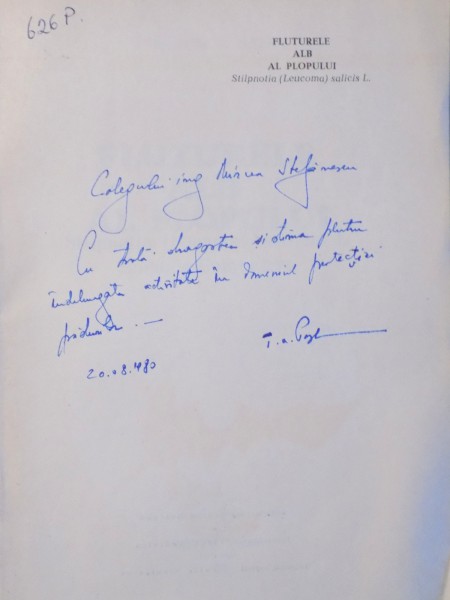 626 P.
FLUTURELE
ALB
AL PLOPULUI
Stilpnotia (Leucoma) salicis L.
Colegului ing Mircea Ștefănescu
Cu toată dragostea și stima pentru
îndelungata activitate în domeniul protecției
pădurilor. —
20.08.980